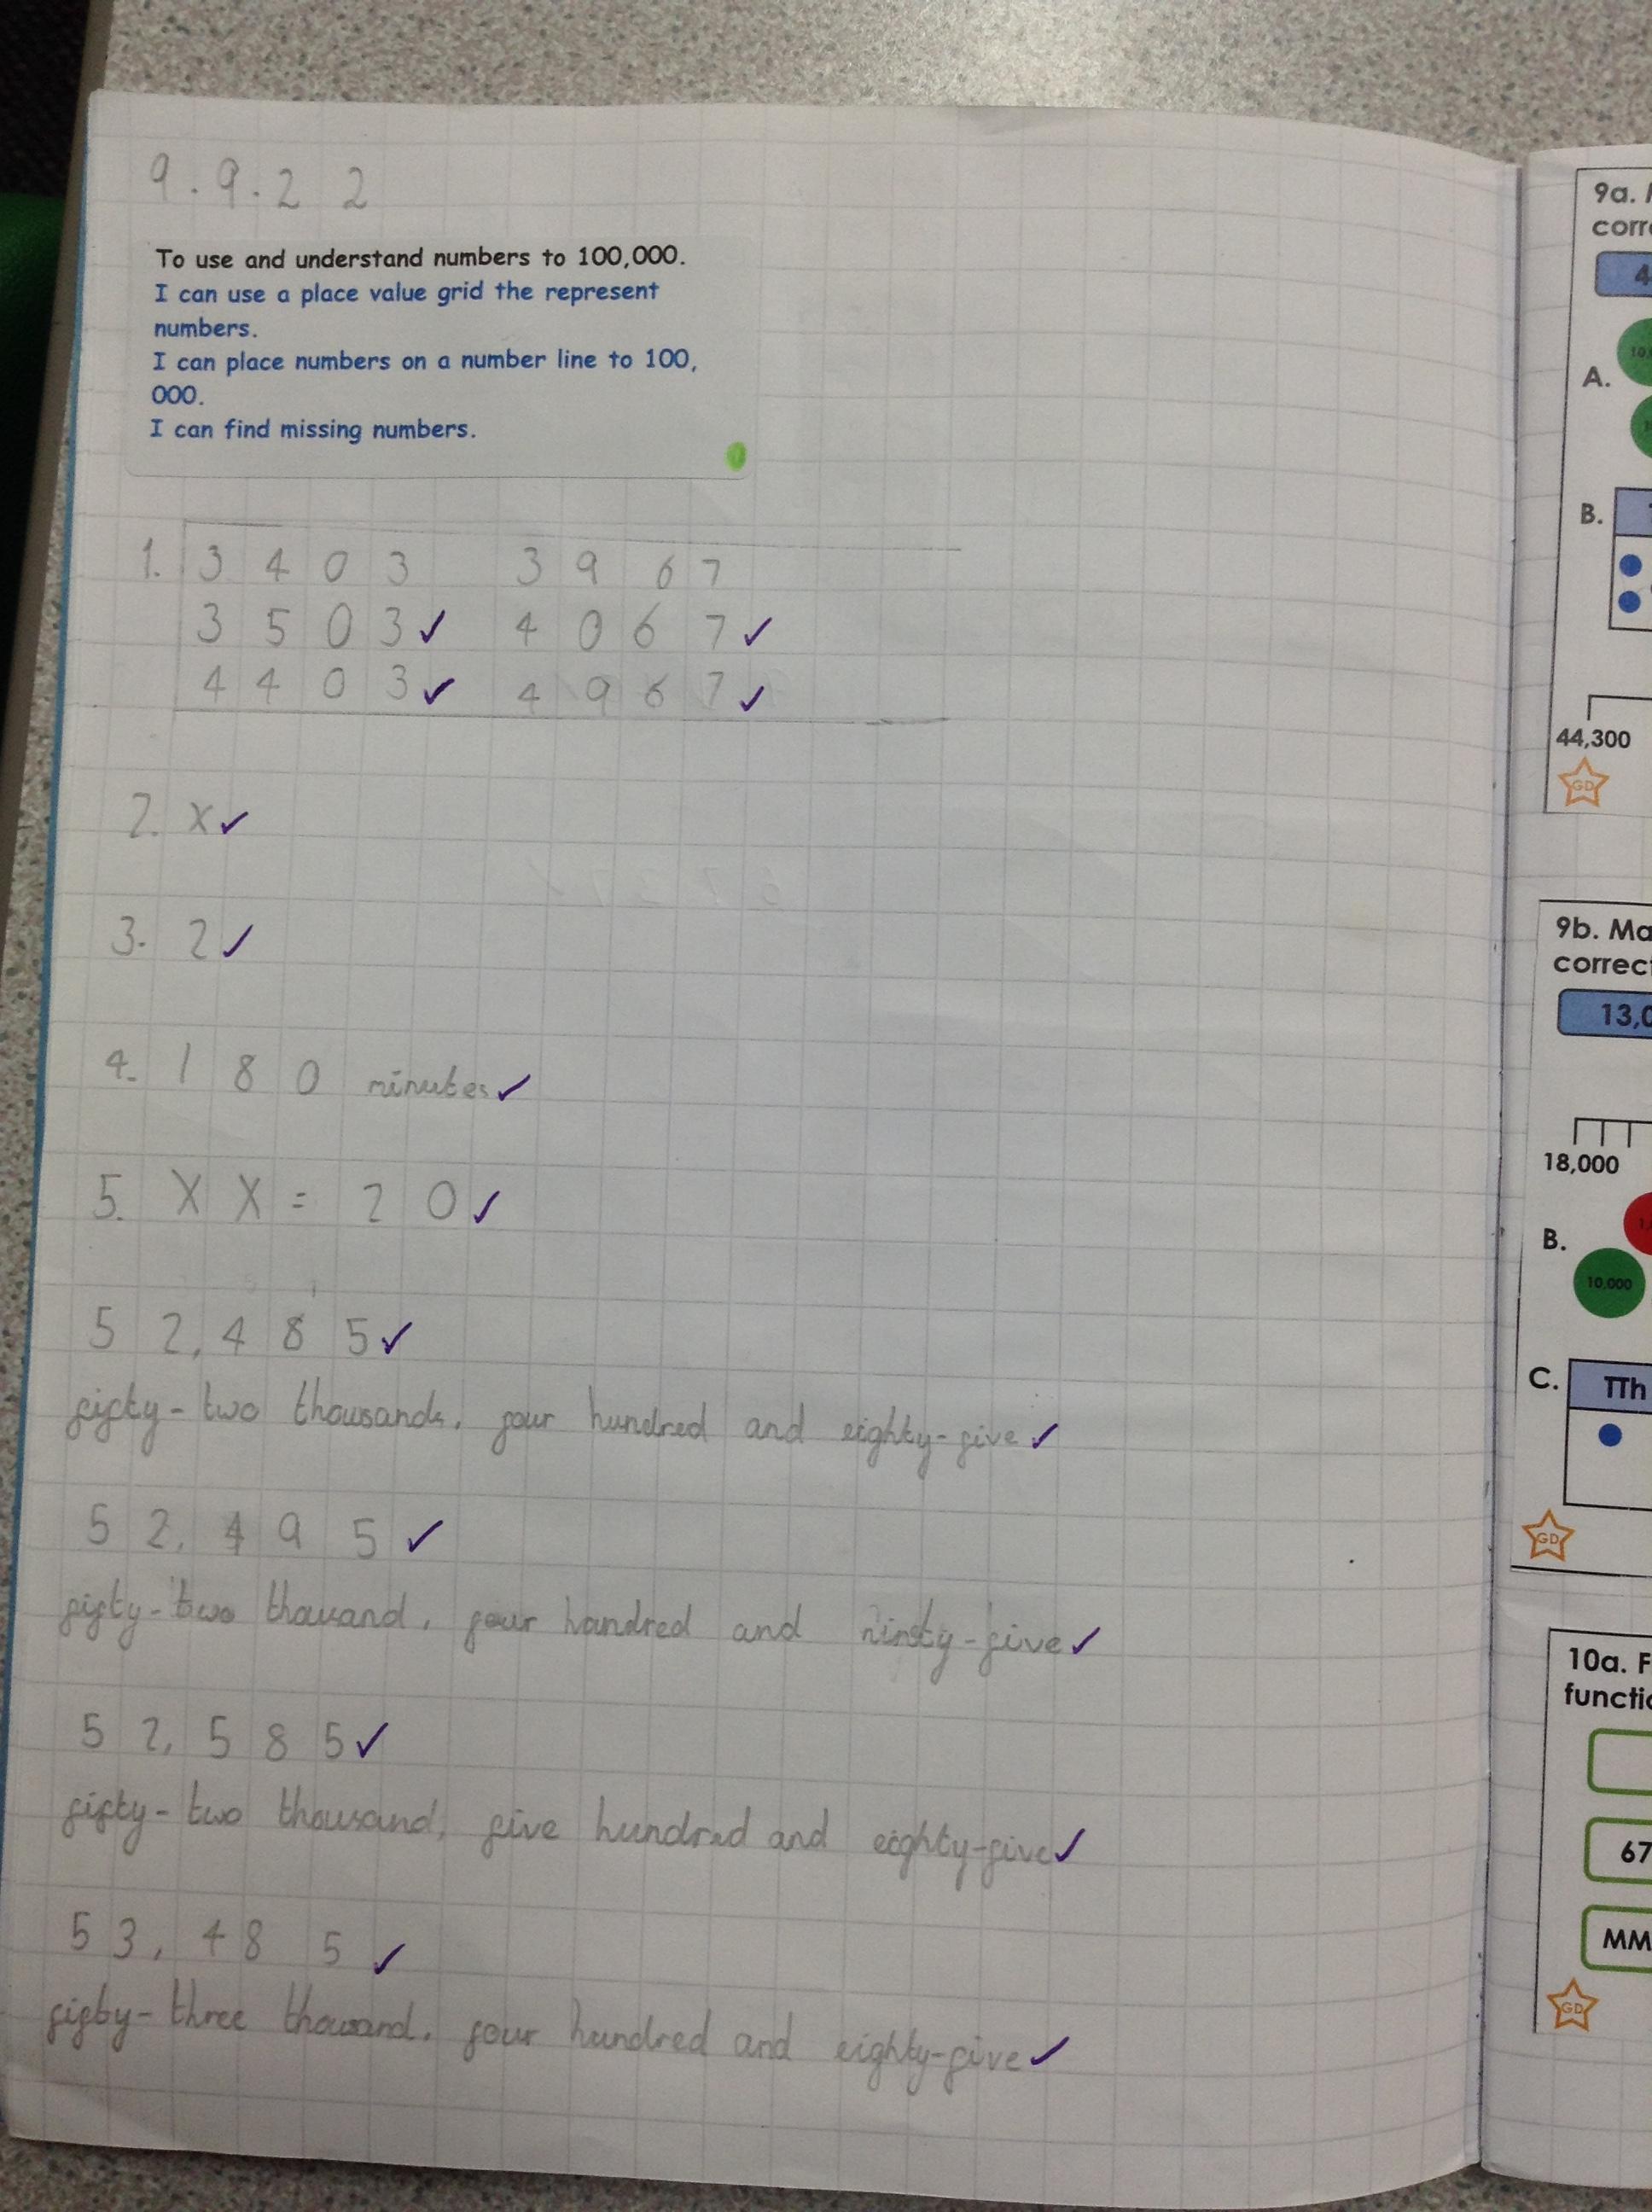 9.9.22
To use and understand numbers to 100,000.
I can use a place value grid the represent
numbers.
I can place numbers on a number line to 100,
000.
I can find missing numbers.
1. 3 4 0 3   3 9 6 7
3 5 0 3 ✓ 4 0 6 7 ✓
4 4 0 3 ✓ 4 9 6 7 ✓
2. X ✓
3. 2 ✓
4. 1 8 0 minutes ✓
5. X X = 2 0 ✓
5 2, 4 8 5 ✓
fifty-two thousands, four hundred and eighty-five ✓
5 2, 4 9 5 ✓
fifty-two thousand, four hundred and ninety-five ✓
5 2, 5 8 5 ✓
fifty-two thousand, five hundred and eighty-five ✓
5 3, 4 8 5 ✓
fifty-three thousand, four hundred and eighty-five ✓
9a.
A.
B.
44,300
GD
9b. Ma
correct
13,0
18,000
B.
10,000
C. TTh
GD
10a. F
functio
67
MM
GD